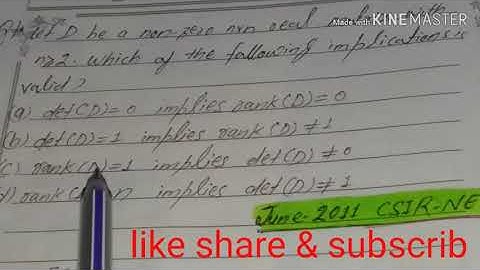 Made with KINEMASTER
D be a non-zero nxn real with
n≥2. which of the following implications is
valid?
(a) det(D)=0 implies rank(D)=0
(b) det(D)=1 implies rank(D)≠1
(c) rank(D)=1 implies det(D)≠0
(d) rank( n implies det(D)≠1
June-2011 CSIR-NE
like share & subscrib